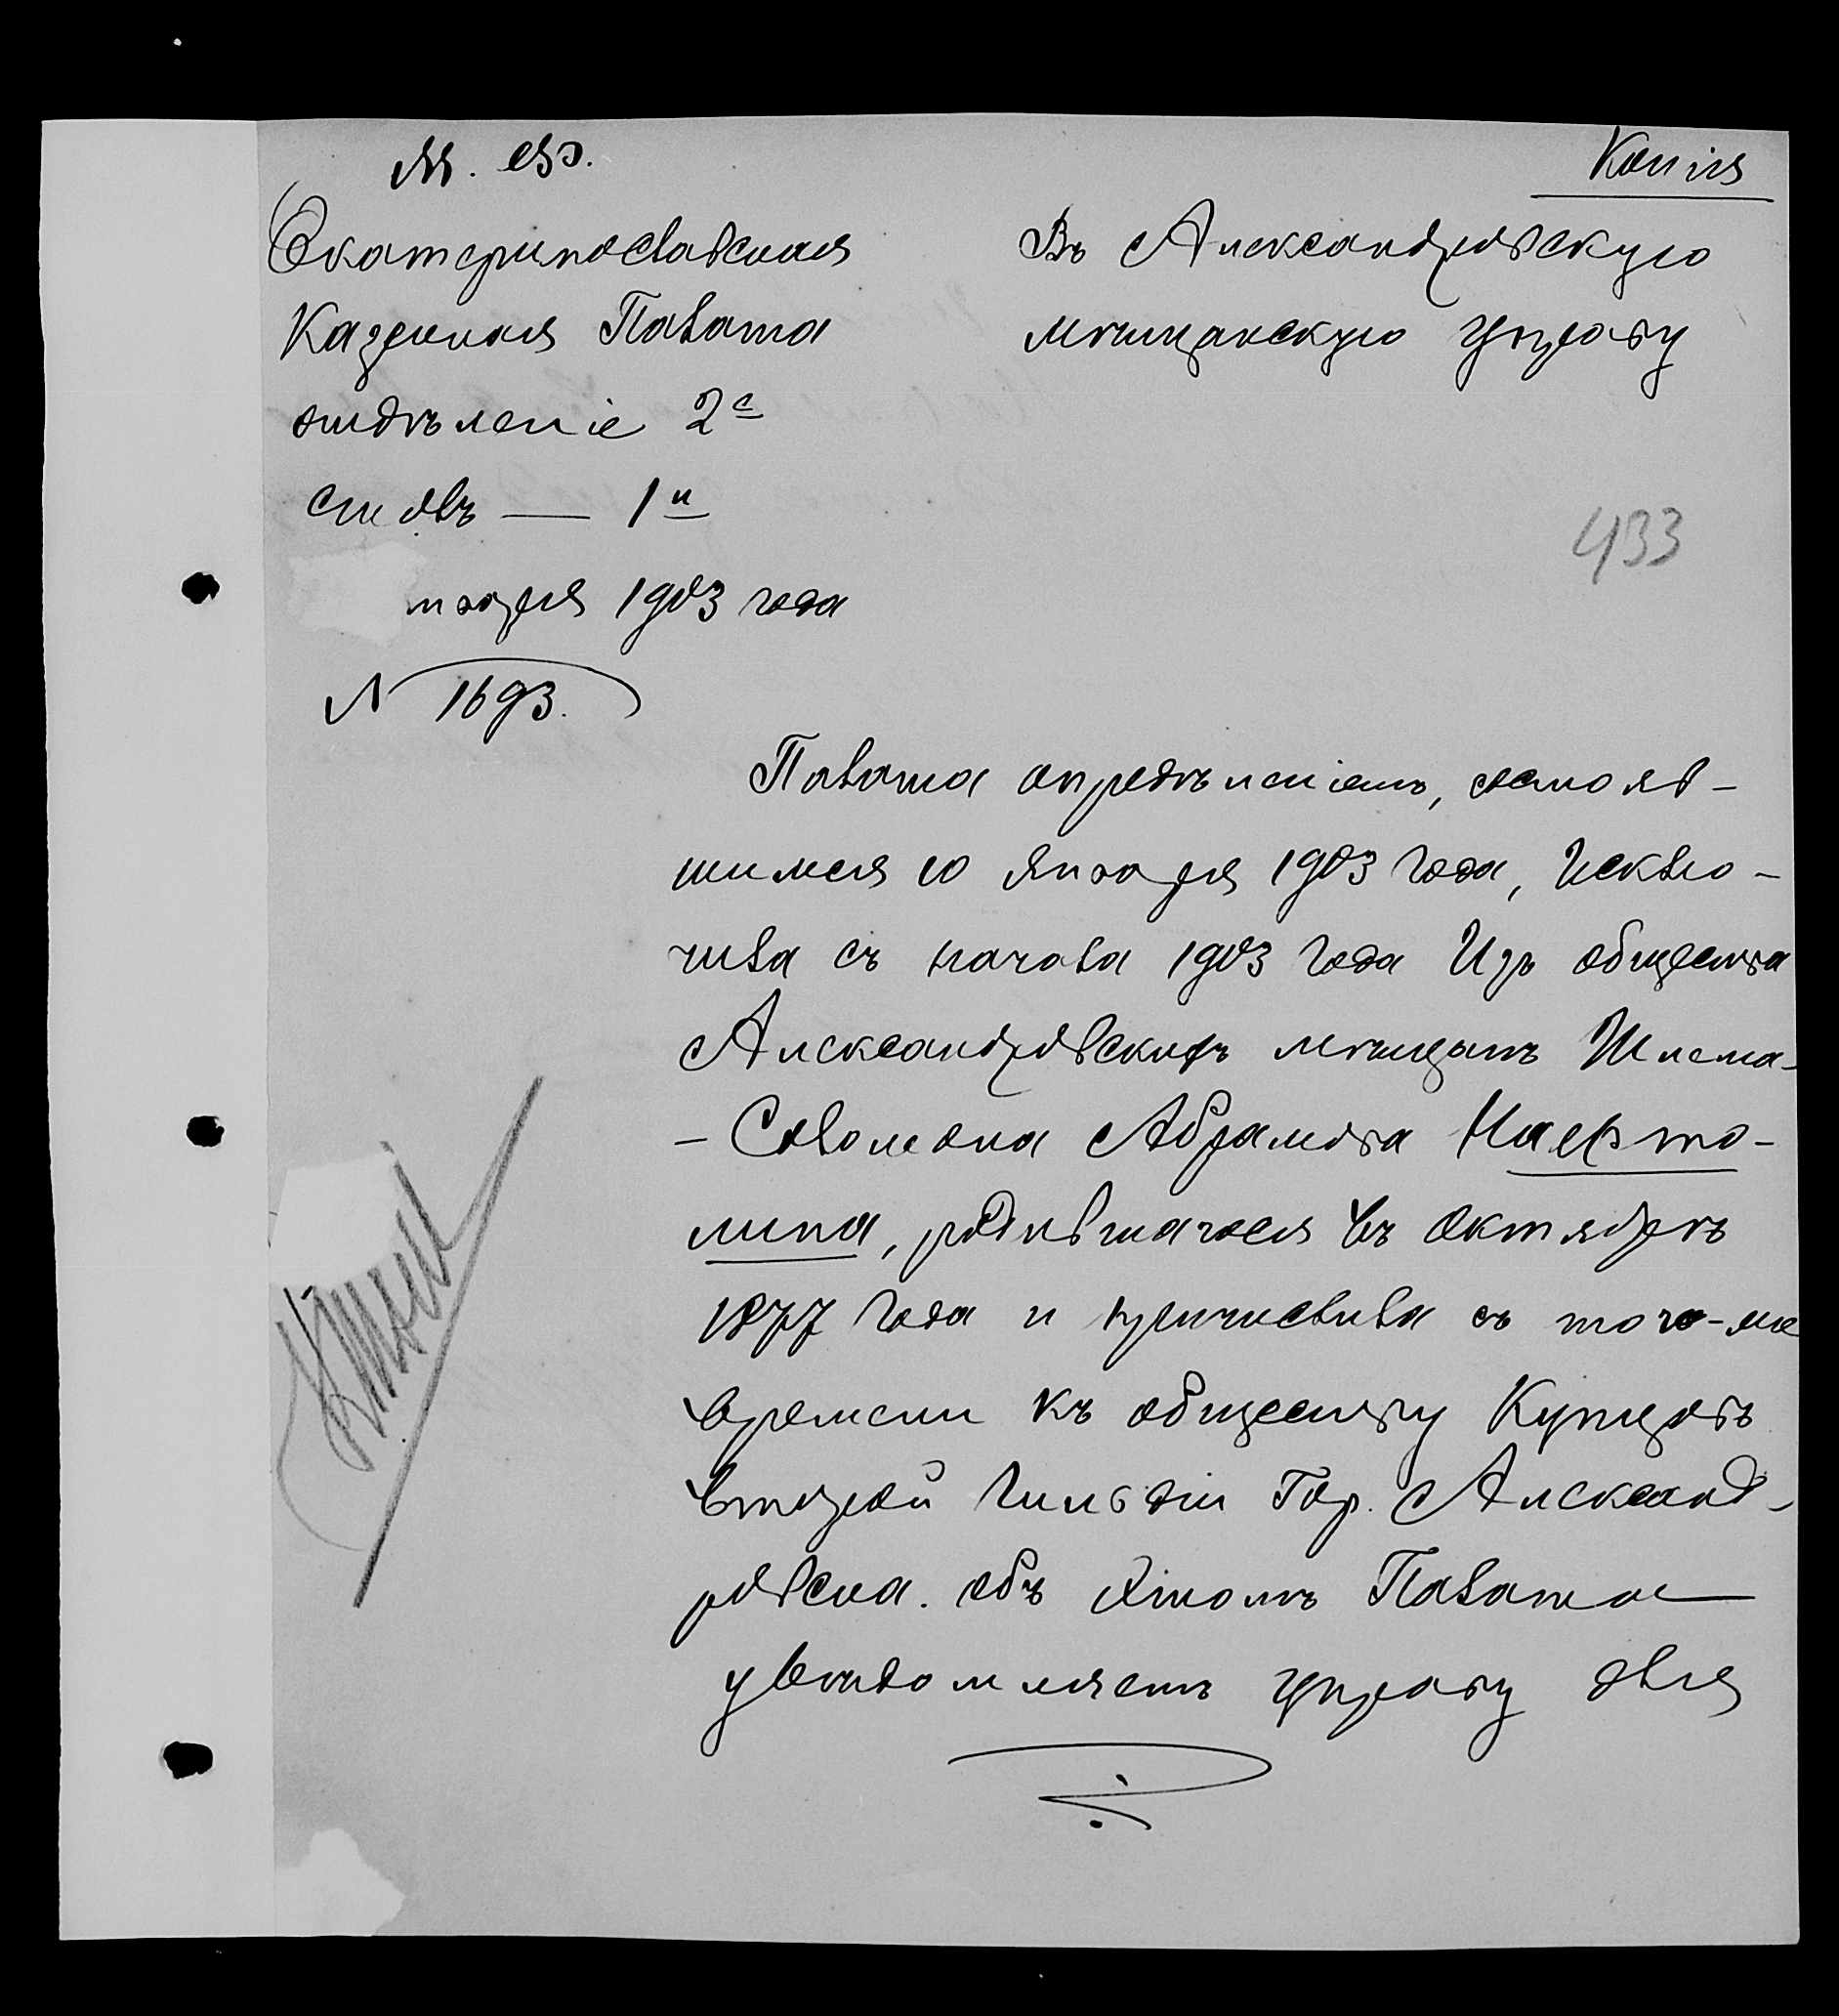 М. Ф.
Копія
Екатеринославская
Казенная Палата
отдѣленіе 2е
столъ — 1й
нваря 1903 года
N 1693.
Въ Александровскую
мѣщанскую управу
433
Палата опредѣленіемъ, состояв-
шимся 10 января 1903 года, исклю-
чила съ начала 1903 года изъ общества
Александровскихъ мѣщанъ Шлема-
- Соломона Абрамова Нафто-
лина, родившагося въ октябрѣ
1877 года и причислила съ того-же
времени къ обществу купцовъ
второй гильдіи гор. Александ-
ровска. объ этомъ Палата
увѣдомляетъ управу для